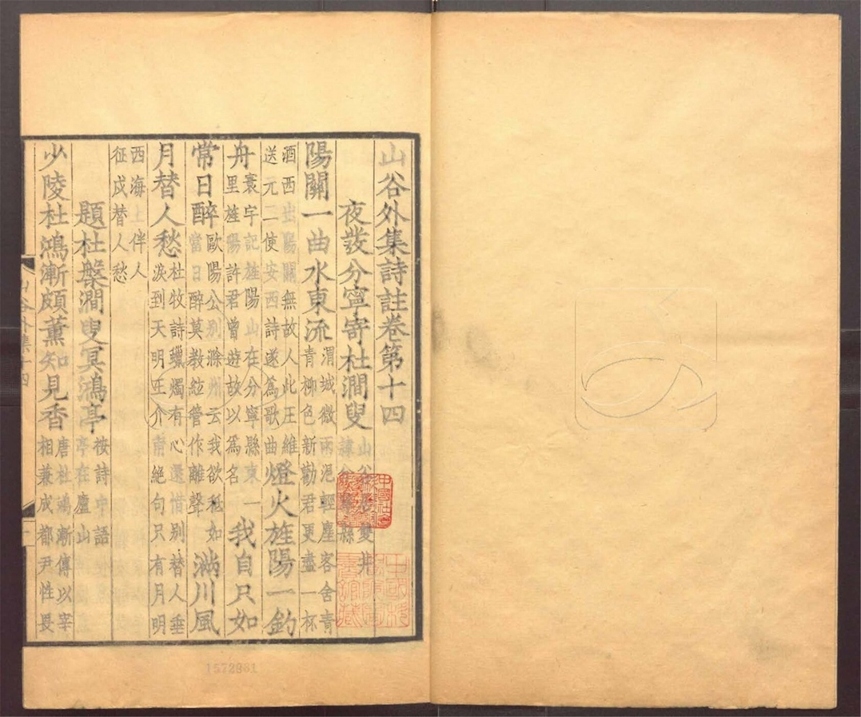 山谷外集詩註卷第十四
夜發分寧寄杜澗叟
陽關一曲水東流
渭城微雨浥輕塵客舍青
青柳色新勸君更盡一杯
酒西出陽關無故人此王維
送元二使安西詩遂爲歌曲
燈火旌陽一釣
舟
寰宇記旌陽山在分寧縣東一
里旌陽許君曾遊故以爲名
我自只如
常日醉
歐陽公別滁州云我欲秪如
當日醉莫教絃管作離聲
滿川風
月替人愁
杜牧詩蠟燭有心還惜別替人垂
淚到天明王介甫絕句只有月明
西海上伴人
征戍替人愁
題杜槃澗叟冥鴻亭
按詩中語
亭在廬山
少陵杜鴻漸頗薰知見香
唐杜鴻漸傳以宰
相兼成都尹性畏
山谷外集十四